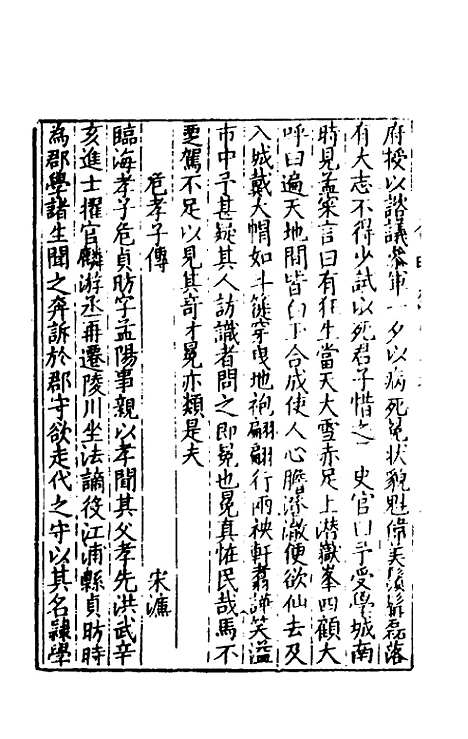 府授以諮議參軍一夕以病死冕狀貌魁偉美鬚髯磊落
有大志不得少試以死君子惜之　史官曰予受學城南
時見孟寀言曰有狂生當天大雪赤足上潛嶽峯四顧大
呼曰遍天地間皆白玉合成使人心膽澄澈便欲仙去及
入城戴大帽如斗簁穿曳地袍翩翩行兩袂軒翥譁笑溢
市中予甚疑其人訪識者問之即冕也冕真怪民哉馬不
覂駕不足以見其奇才冕亦類是夫
危孝子傳　宋濂
臨海孝子危貞昉字孟陽事親以孝聞其父孝先洪武辛
亥進士擢官麟游丞再遷陵川坐法謫役江浦縣貞昉時
為郡學諸生聞之奔訴於郡守欲走代之守以其名隸學